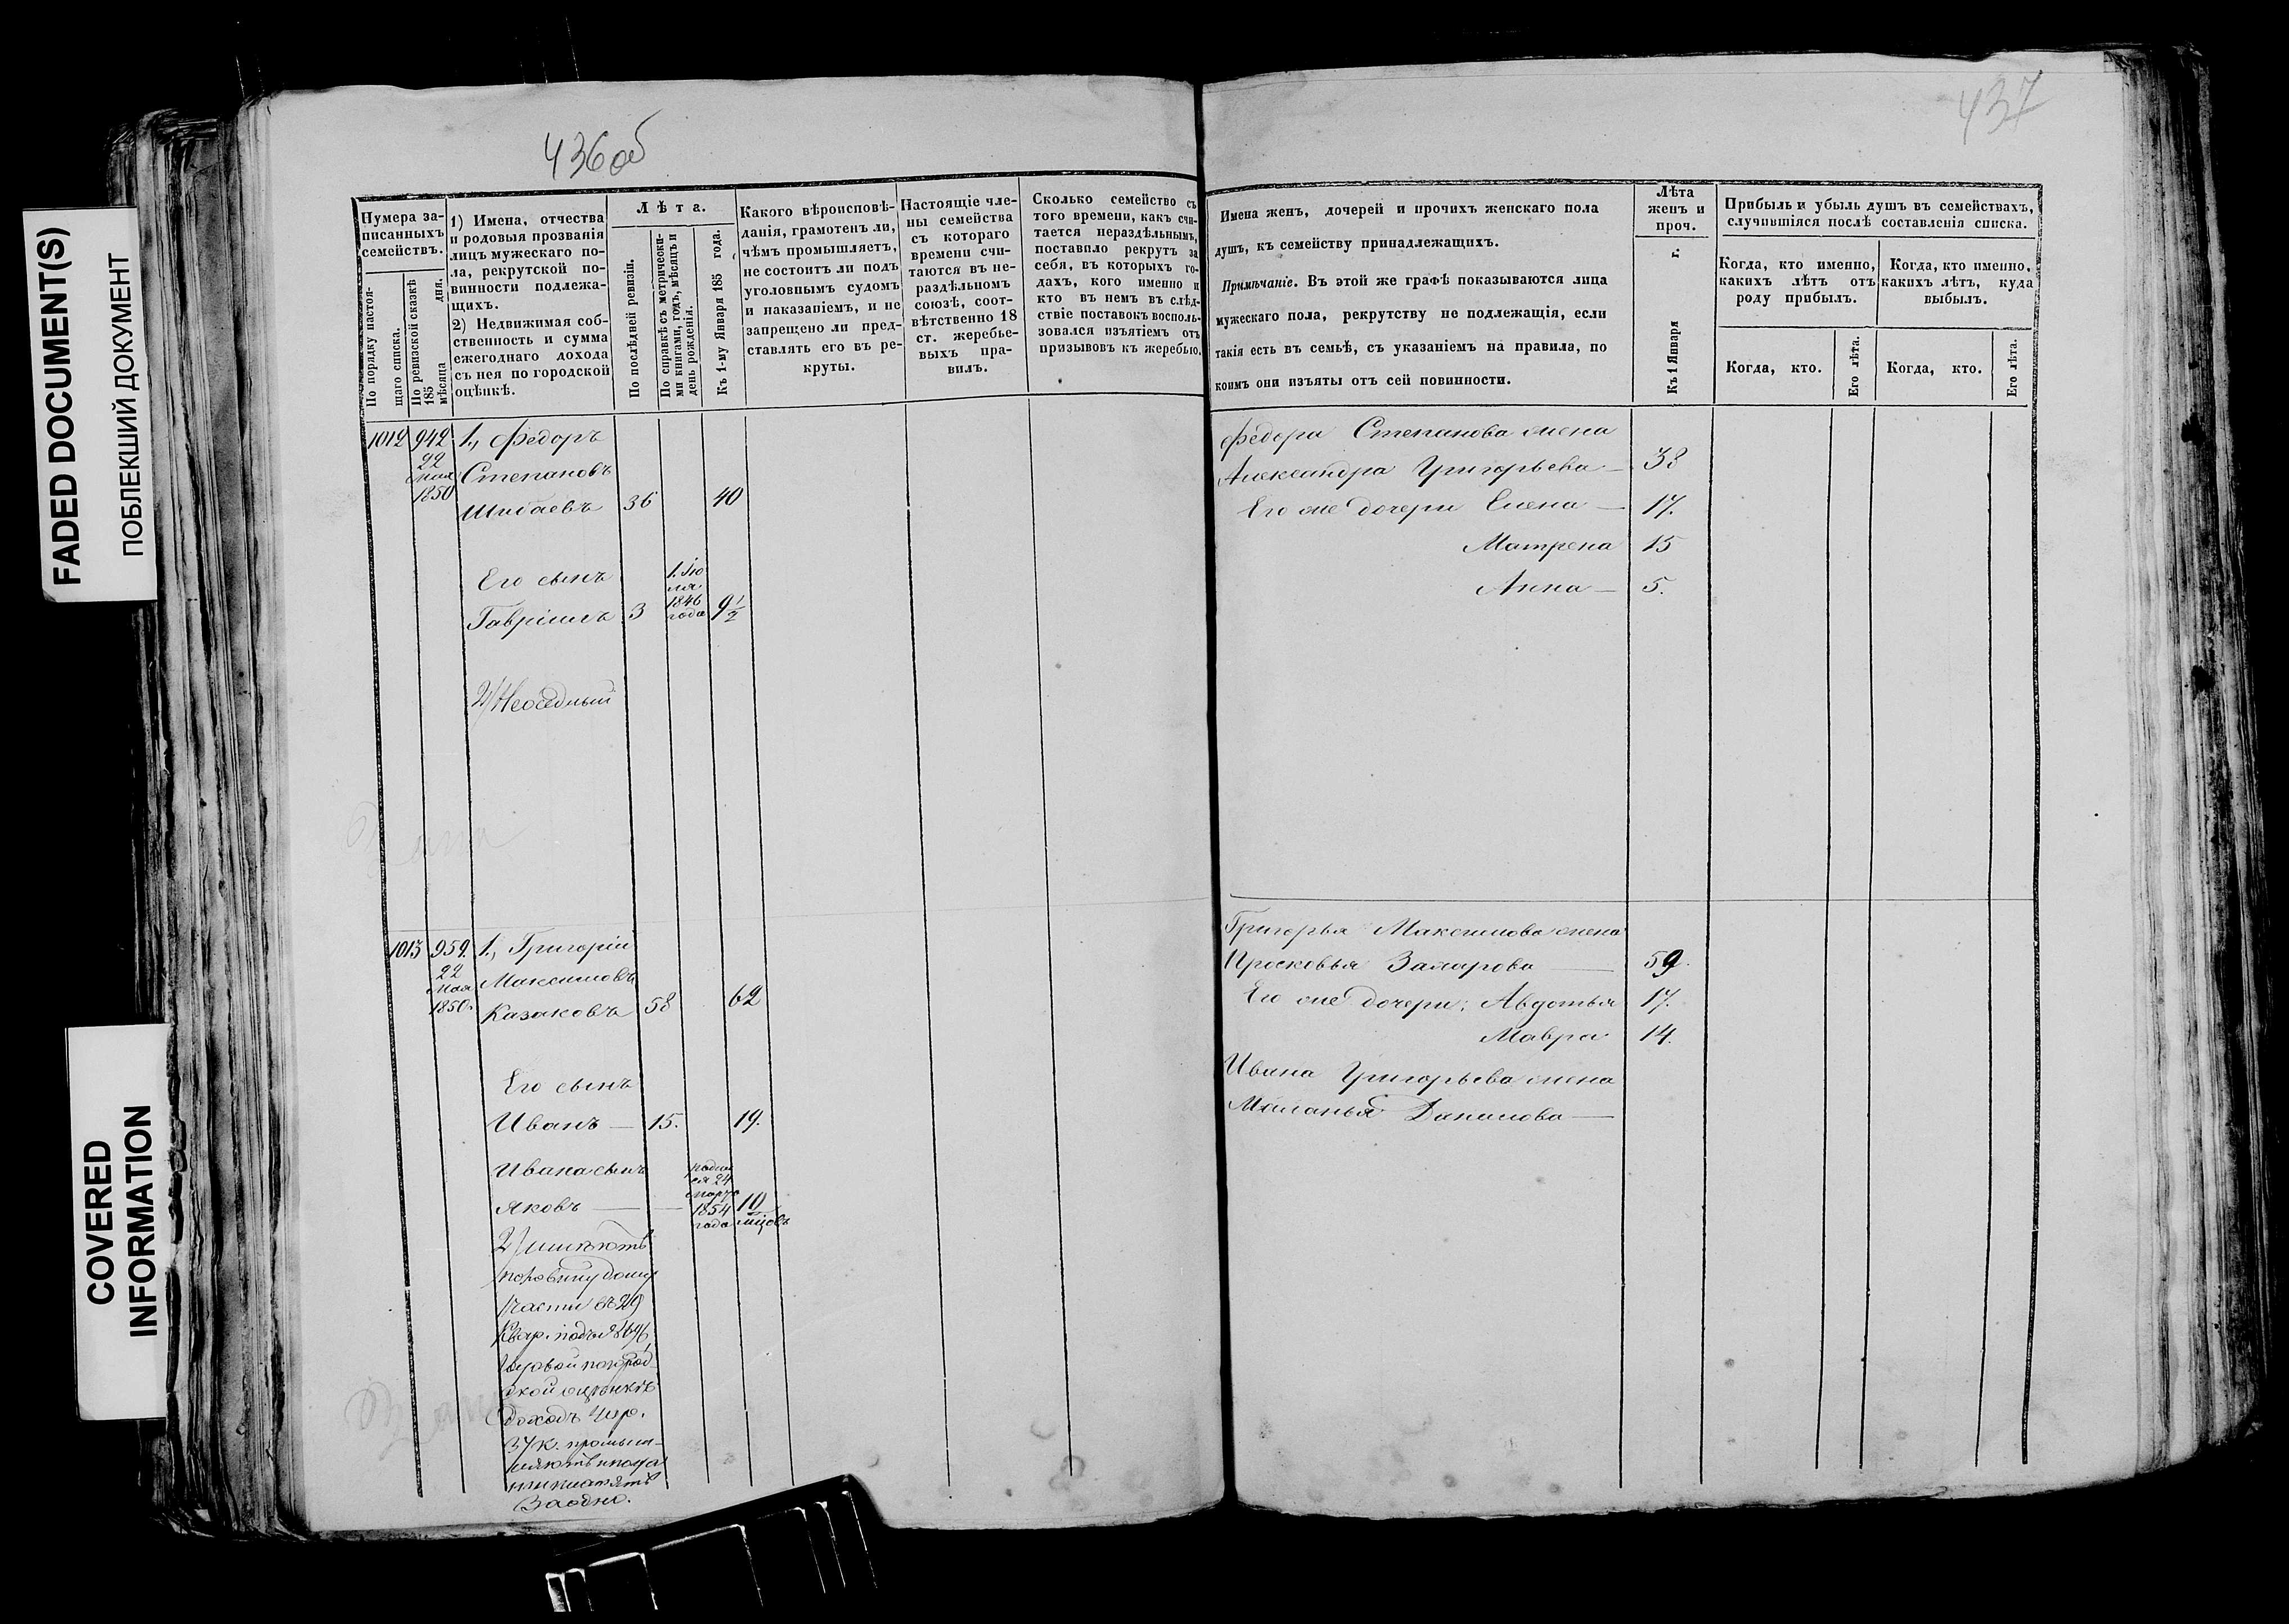 FADED DOCUMENT(S)
ПОБЛЕКШИЙ ДОКУМЕНТ
COVERED
INFORMATION
436об
Нумера за-
писанныхъ
семействъ.
По порядку настоя-
щаго списка.
По ревизской сказкѣ
185
мѣсяца дня.
1) Имена, отчества
и родовыя прозванія
лицъ мужескаго по-
ла, рекрутской по-
винности подлежа-
щихъ.
2) Недвижимая соб-
ственность и сумма
ежегоднаго дохода
съ нея по городской
оцѣнкѣ.
Лѣта.
По послѣдней ревизіи.
По справкѣ съ метрически-
ми книгами, годъ, мѣсяцъ и
день рожденія.
Къ 1-му Января 185 года.
Какого вѣроисповѣ-
данія, грамотенъ ли,
чѣмъ промышляетъ,
не состоитъ ли подъ
уголовнымъ судомъ
и наказаніемъ, и не
запрещено ли пред-
ставлять его въ ре-
круты.
Настоящіе чле-
ны семейства
съ котораго
времени счи-
таются въ не-
раздѣльномъ
союзѣ, соот-
вѣтственно 18
ст. жеребье-
выхъ пра-
вилъ.
Сколько семейство съ
того времени, какъ счи-
тается нераздѣльнымъ,
поставило рекрутъ за
себя, въ которыхъ го-
дахъ, кого именно и
кто въ немъ въ слѣд-
ствіе поставокъ восполь-
зовался изъятіемъ отъ
призывовъ къ жеребью.
1012 942 1., Федоръ
22
мая
1850
Степановъ
Шибаевъ 36 40
Его сынъ
Гавріилъ 3
1. Ію
ля
1846
года
9 1/2
2/ Неоседлый
1013 959. 1., Григорій
22
мая
1850.
Максимовъ
Казаковъ 58 62
Его сынъ
Иванъ — 15. 19.
Ивана сынъ
Яковъ — —
родил
ся 24
марта
1854
года
10
мцовъ
2/ имѣютъ
половину дому
части въ 29
Квар. подъ №
годовой по город
ской оцѣнкѣ
доходъ
промыш-
ляютъ и пода
ти платятъ
Заодно.
437
Имена женъ, дочерей и прочихъ женскаго пола
душъ, къ семейству принадлежащихъ.
Примѣчаніе. Въ этой же графѣ показываются лица
мужескаго пола, рекрутству не подлежащія, если
такія есть въ семьѣ, съ указаніемъ на правила, по
коимъ они изъяты отъ сей повинности.
Лѣта
женъ и
проч.
Къ 1 Января г.
Прибыль и убыль душъ въ семействахъ,
случившіяся послѣ составленія списка.
Когда, кто именно,
какихъ лѣтъ отъ
роду прибылъ.
Когда, кто именно,
какихъ лѣтъ, куда
выбылъ.
Когда, кто.
Его лѣта.
Когда, кто.
Его лѣта.
Федора Степанова жена
Александра Григорьева — 38
Его же дочери Елена — 17.
Матрена 15
Анна — 5.
Григорья Максимова жена
Просковья Захарова — 59.
Его же дочери: Авдотья 17.
Мавра 14.
Ивана Григорьева жена
Маланья Данилова —